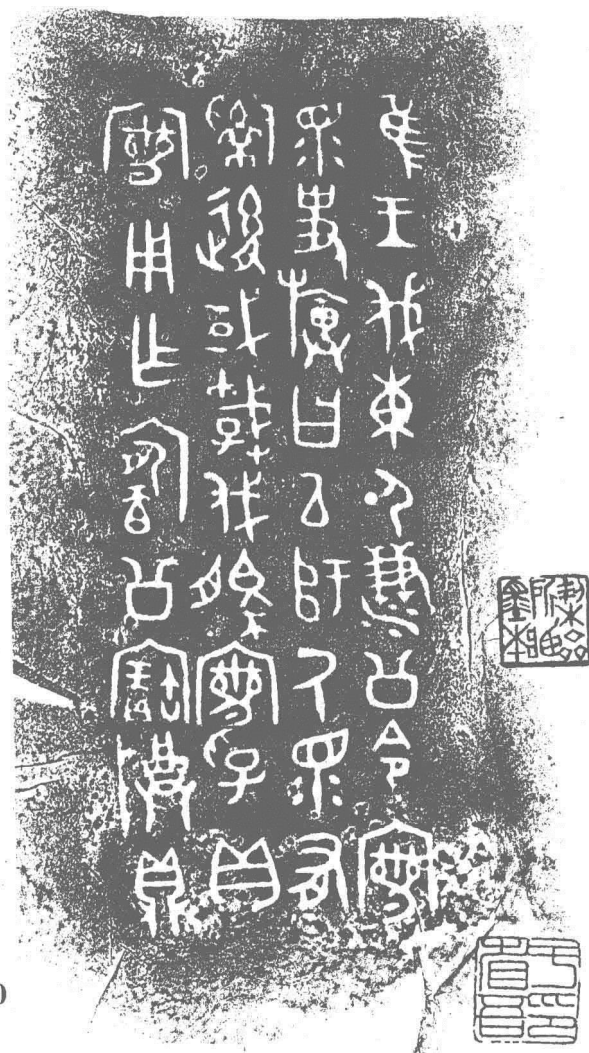 隹王伐東尸溓公令
眔史旟曰以師氏眔有
𤔲後或伐孚貝
用乍公寶尊鼎